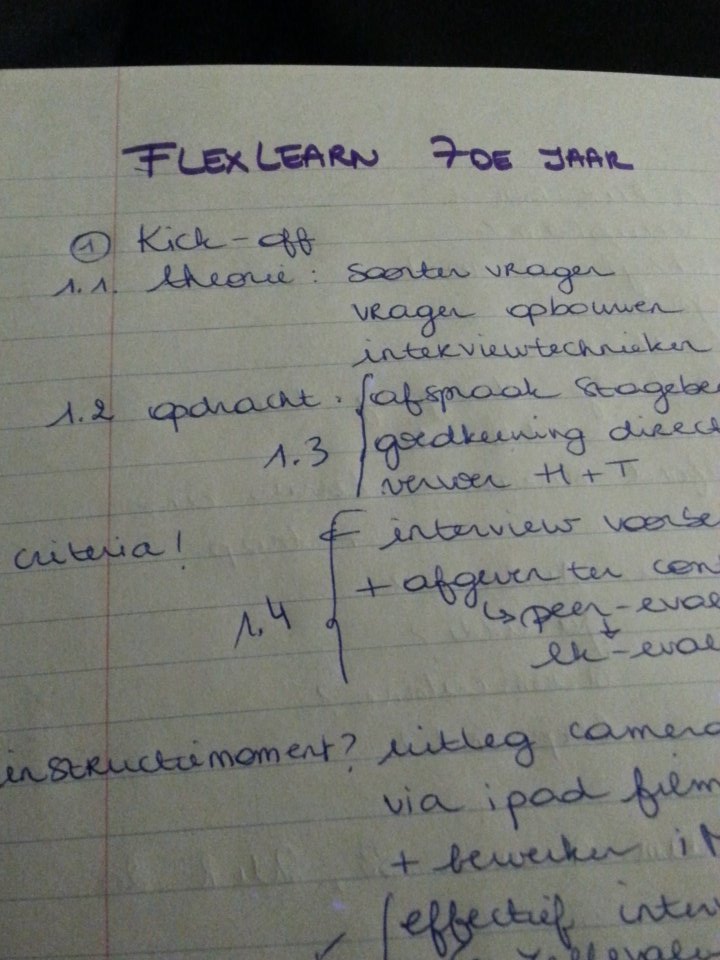 FLEXLEARN 7DE JAAR
① Kick-off
1.1. theorie: soorten vragen
vragen opbouwen
interviewtechnieken
1.2 opdracht: afspraak stagebe
1.3 goedkeuring direc
vervoer H+T
criteria! interview voorbe
+ afgeven ter con
1.4 ↳ peer-eval
↓
lk-eval
instructiemoment? uitleg camera
via ipad film
+ bewerken iM
effectief inter